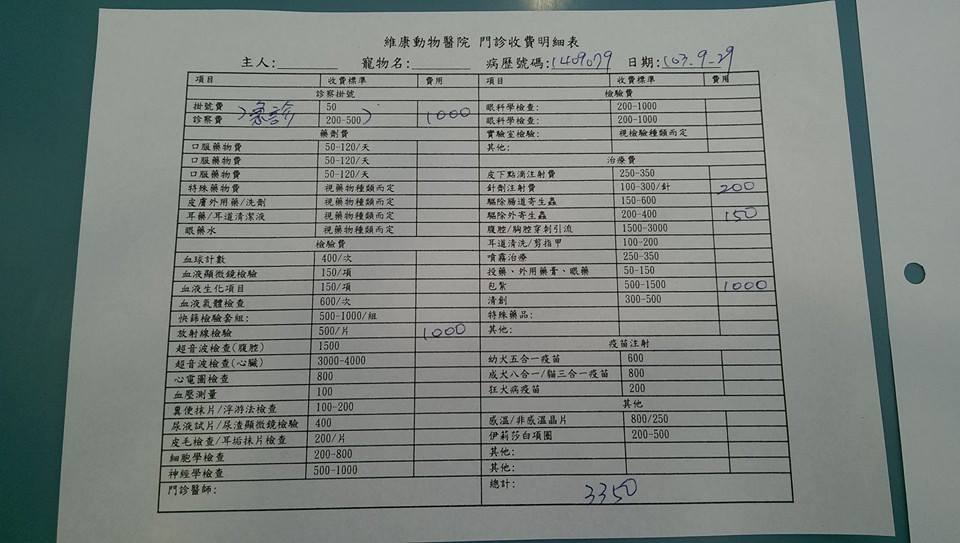 維康動物醫院 門診收費明細表
主人:________ 寵物名:________ 病歷號碼:1409079 日期:103.9.29
項目 收費標準 費用
診察掛號
掛號費 50
診察費 >急診 200-500 1000
藥劑費
口服藥物費 50-120/天
口服藥物費 50-120/天
口服藥物費 50-120/天
特殊藥物費 視藥物種類而定
皮膚外用藥/洗劑 視藥物種類而定
耳藥/耳道清潔液 視藥物種類而定
眼藥水 視藥物種類而定
檢驗費
血球計數 400/次
血液顯微鏡檢驗 150/項
血液生化項目 150/項
血液氣體檢查 600/次
快篩檢驗套組: 500-1000/組
放射線檢驗 500/片 1000
超音波檢查(腹腔) 1500
超音波檢查(心臟) 3000-4000
心電圖檢查 800
血壓測量 100
糞便抹片/浮游法檢查 100-200
尿液試片/尿渣顯微鏡檢驗 400
皮毛檢查/耳垢抹片檢查 200/片
細胞學檢查 200-800
神經學檢查 500-1000
門診醫師:
項目 收費標準 費用
檢驗費
眼科學檢查: 200-1000
眼科學檢查: 200-1000
實驗室檢驗: 視檢驗種類而定
其他:
治療費
皮下點滴注射費 250-350
針劑注射費 100-300/針 200
驅除腸道寄生蟲 150-600
驅除外寄生蟲 200-400 150
腹腔/胸腔穿刺引流 1500-3000
耳道清洗/剪指甲 100-200
噴霧治療 250-350
投藥、外用藥膏、眼藥 50-150
包紮 500-1500 1000
清創 300-500
特殊藥品:
其他:
疫苗注射
幼犬五合一疫苗 600
成犬八合一/貓三合一疫苗 800
狂犬病疫苗 200
其他
感溫/非感溫晶片 800/250
伊莉莎白項圈 200-500
其他:
其他:
總計: 3350